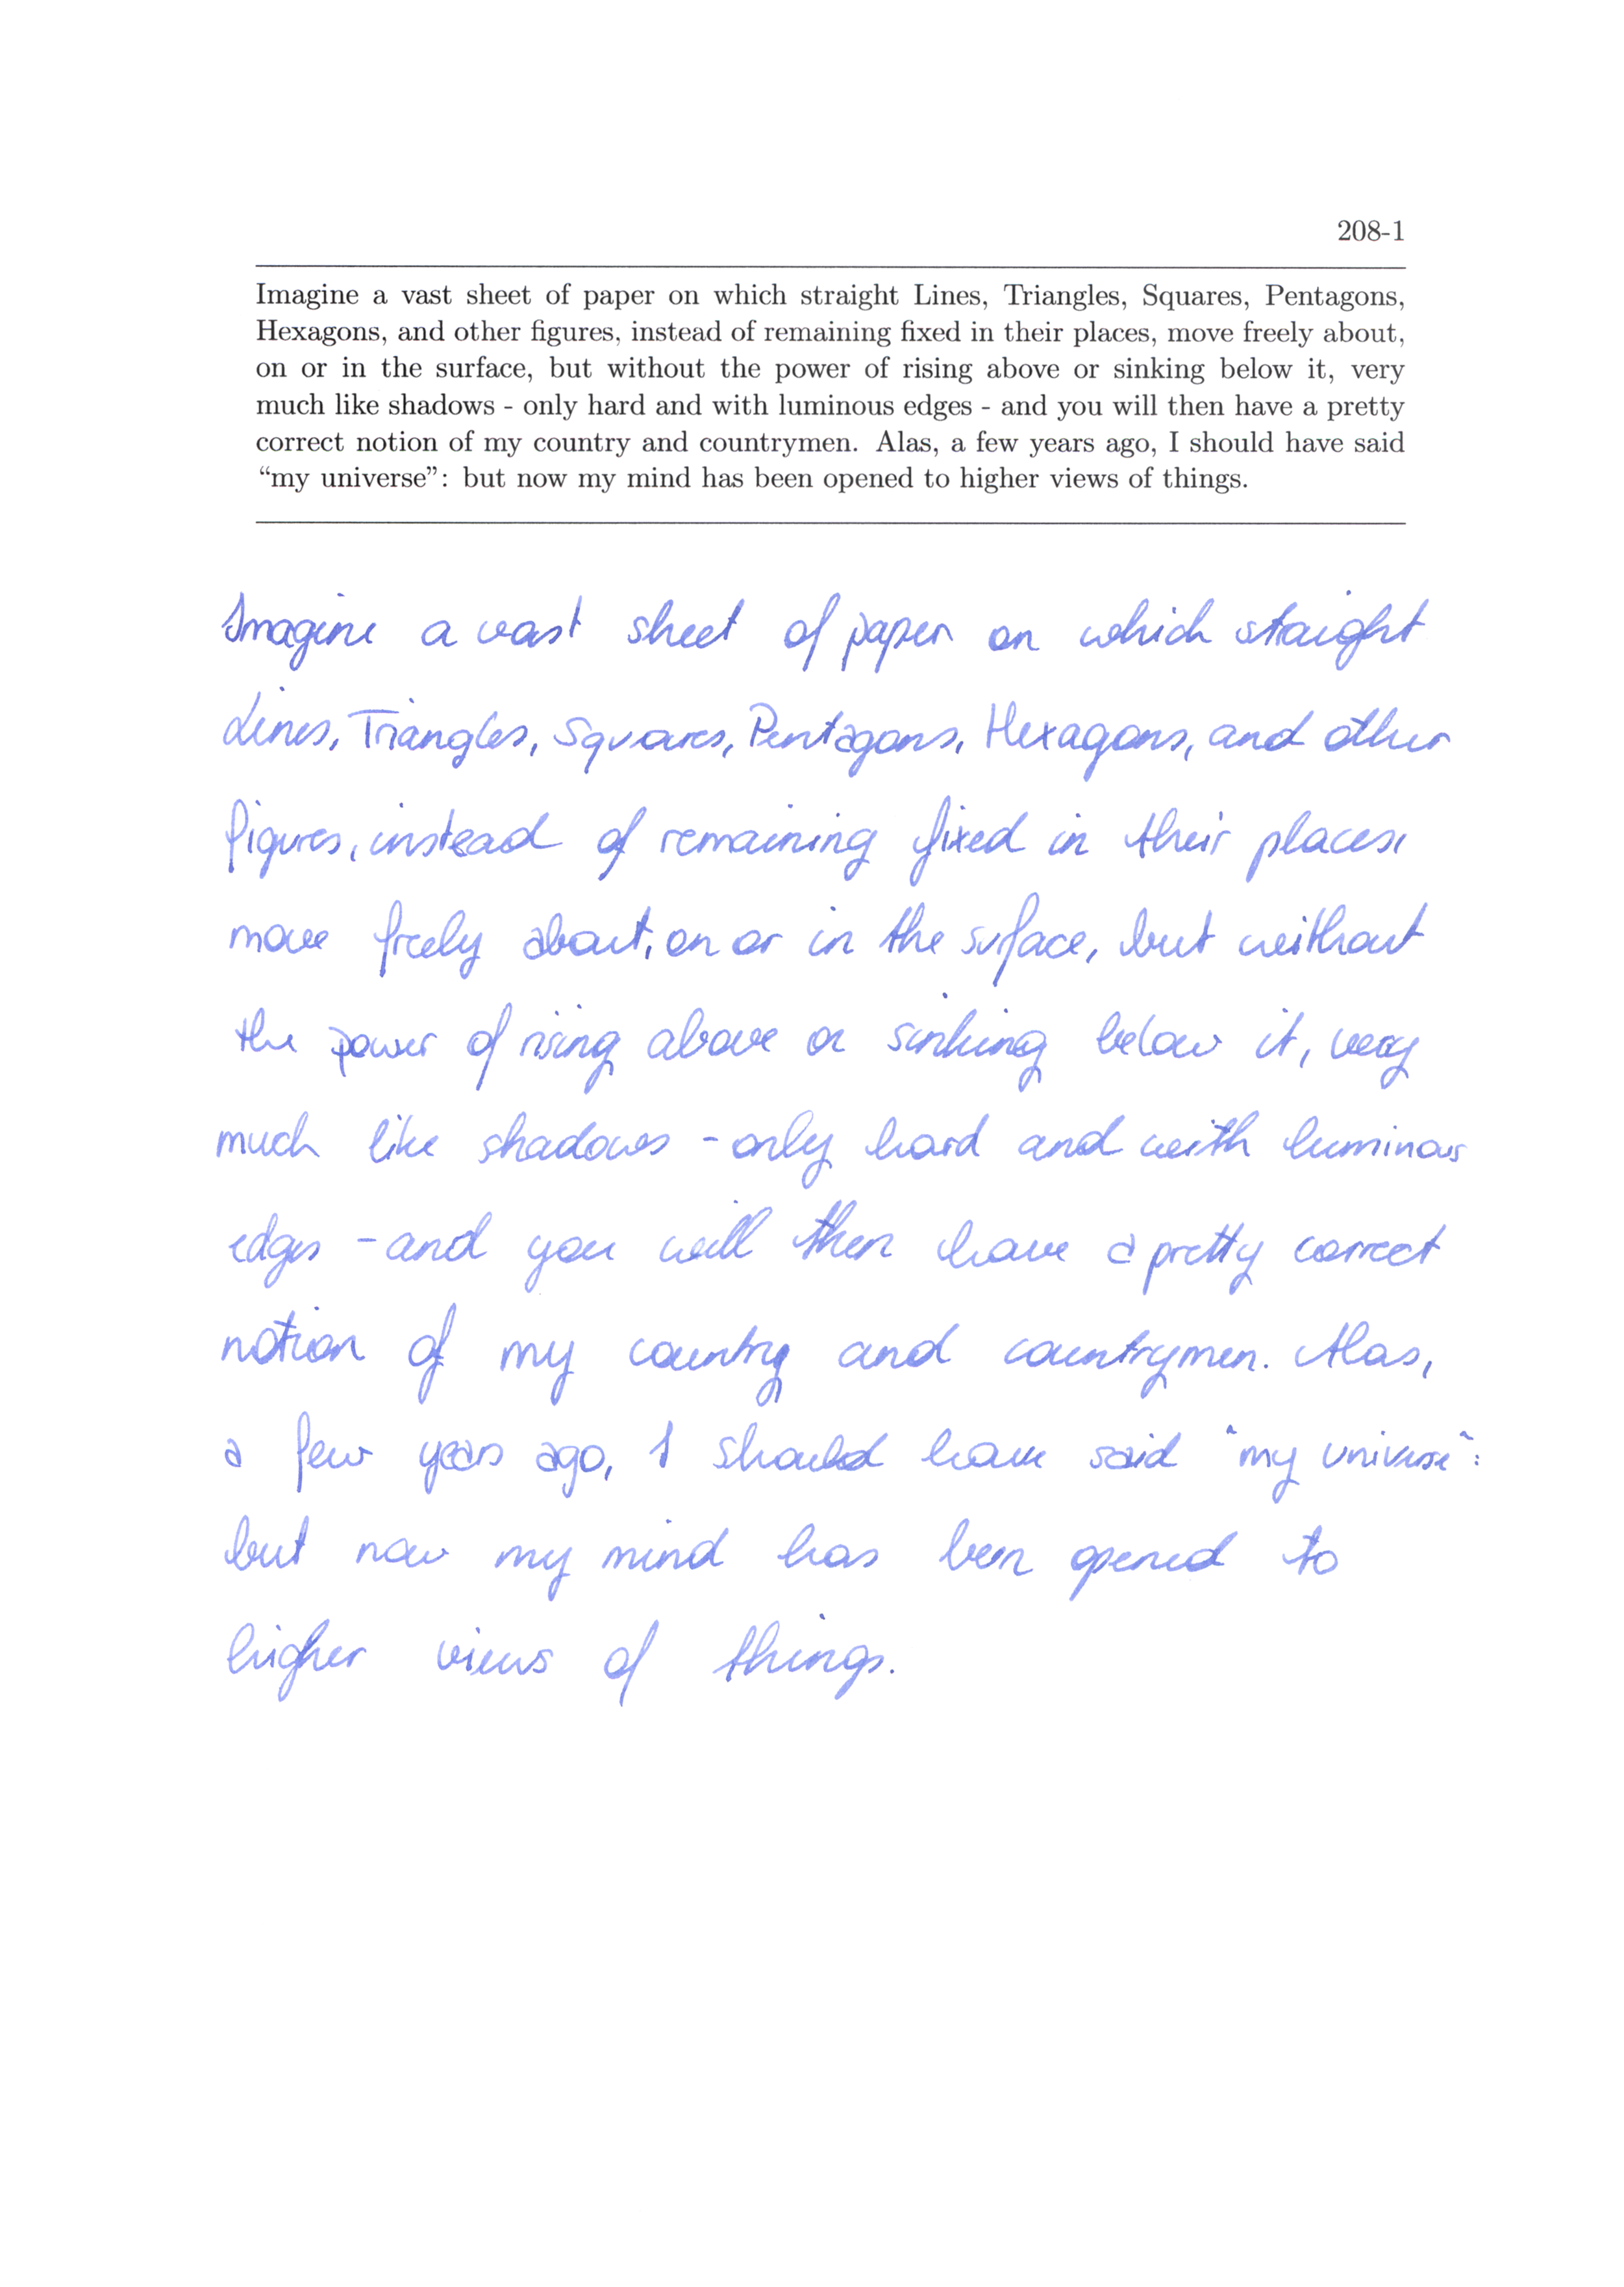 208-1
Imagine a vast sheet of paper on which straight Lines, Triangles, Squares, Pentagons,
Hexagons, and other figures, instead of remaining fixed in their places, move freely about,
on or in the surface, but without the power of rising above or sinking below it, very
much like shadows - only hard and with luminous edges - and you will then have a pretty
correct notion of my country and countrymen. Alas, a few years ago, I should have said
“my universe”: but now my mind has been opened to higher views of things.
Imagine a vast sheet of paper on which straight
Lines, Triangles, Squares, Pentagons, Hexagons, and other
figures, instead of remaining fixed in their places,
move freely about, on or in the surface, but without
the power of rising above or sinking below it, very
much like shadows - only hard and with luminous
edges - and you will then have a pretty correct
notion of my country and countrymen. Alas,
a few years ago, I should have said "my universe":
but now my mind has been opened to
higher views of things.